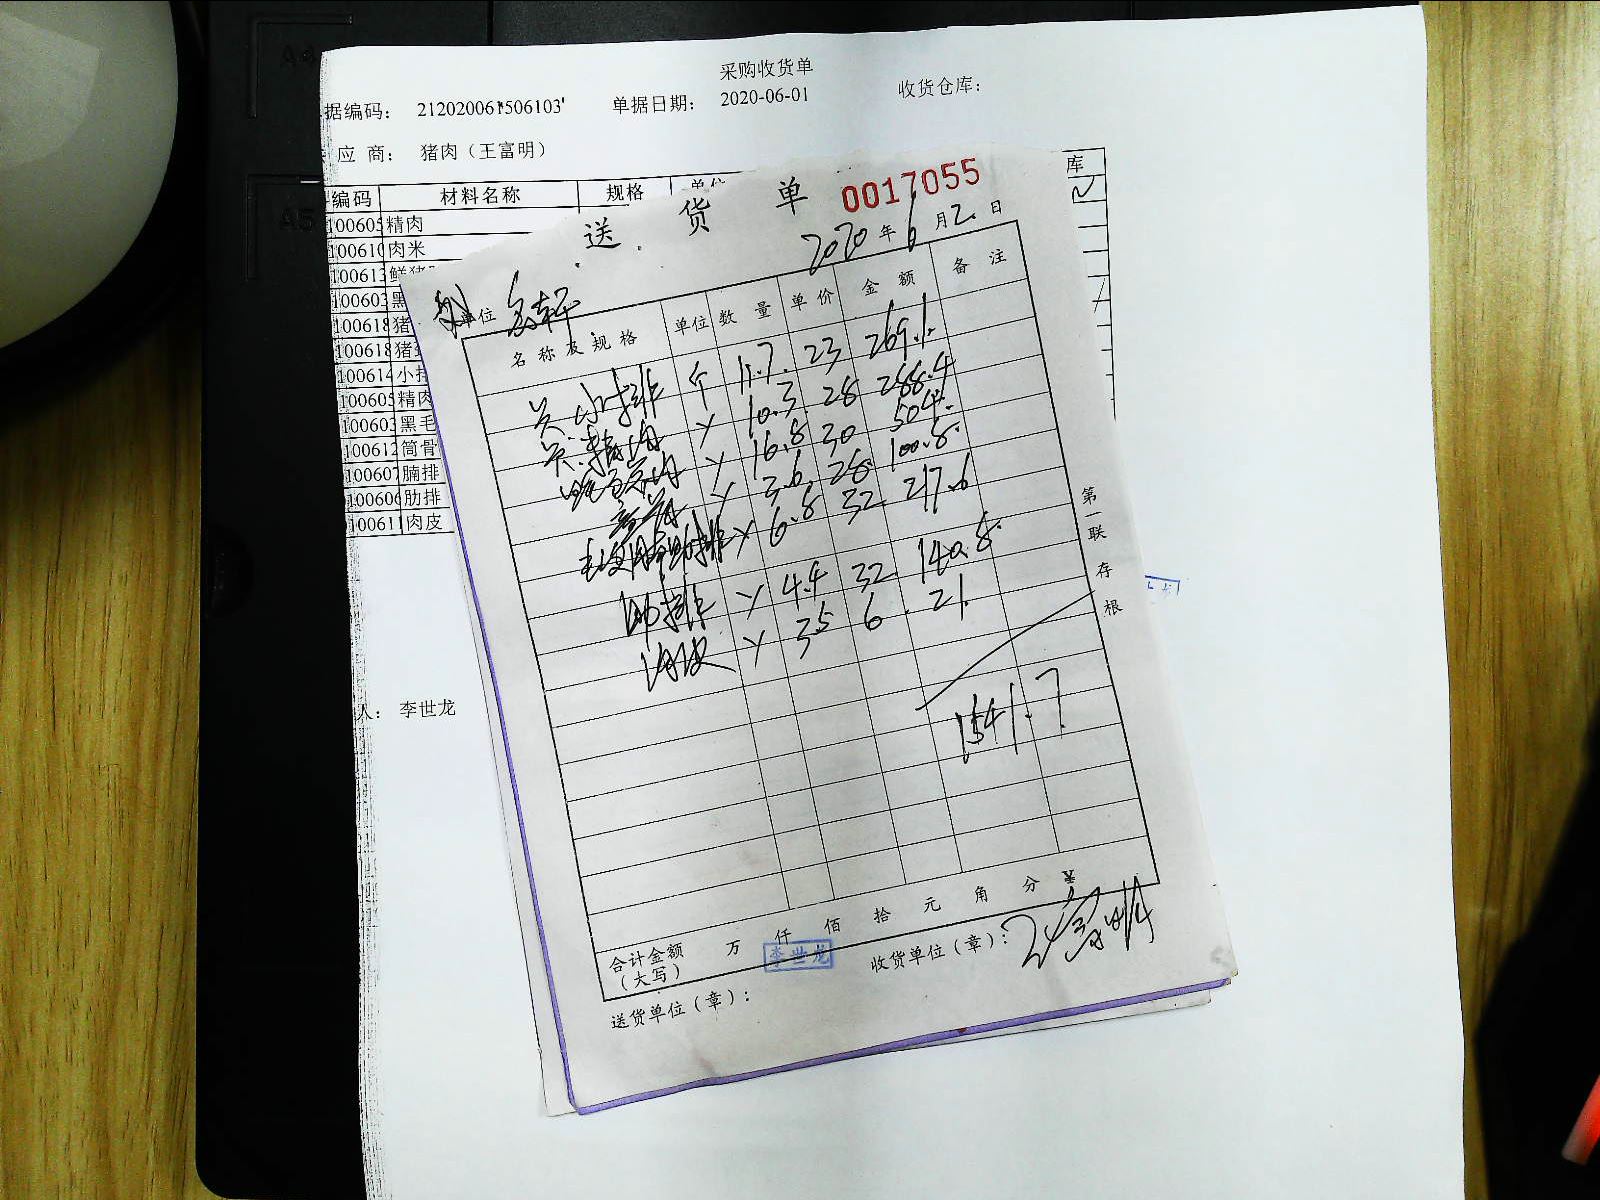 采购收货单
据编码： 212020061506103 单据日期： 2020-06-01 收货仓库：
应 商： 猪肉（王富明）
编码 材料名称 规格 单位 库
100605 精肉
100610 肉米
100613 鲜猪
100603 黑
100618 猪
100618 猪
100614 小排
100605 精肉
100603 黑毛
100612 筒骨
100607 腩排
100606 肋排
100611 肉皮
人： 李世龙
送 货 单 0017055
2020 年 6 月 2 日
单位
名称及规格 单位 数量 单价 金额 备注
小排 个 11.7 23 269.1
精肉 10.3 28 288.4
16.8 30 504
3.6 28 100.8
6.8 32 217.6
肋排 4.4 32 140.8
肉皮 35 6 21
1541.7
第一联 存根
合计金额（大写） 万 仟 佰 拾 元 角 分 ¥
李世龙
收货单位（章）：
送货单位（章）：